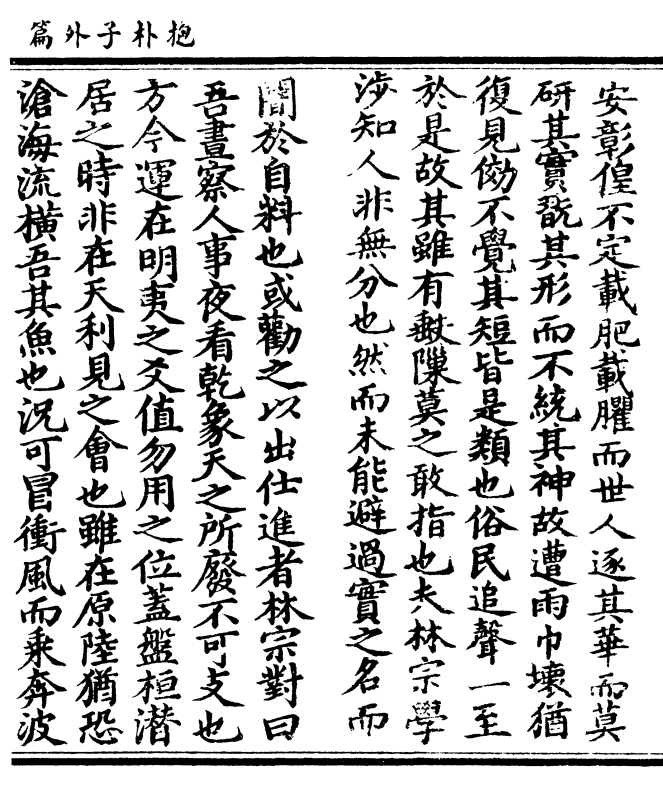 抱朴子外篇
安彰偟不定載肥載臞而世人逐其華而莫
研其實翫其形而不統其神故遭雨巾壞猶
復見傚不覺其短皆是類也俗民追聲一至
於是故其雖有虧隟莫之敢指也夫林宗學
涉知人非無分也然而未能避過實之名而
闇於自料也或勸之以出仕進者林宗對曰
吾晝察人事夜看乾象天之所廢不可支也
方今運在明夷之爻值勿用之位蓋盤桓潛
居之時非在天利見之會也雖在原陸猶恐
滄海流橫吾其魚也況可冒衝風而乘奔波